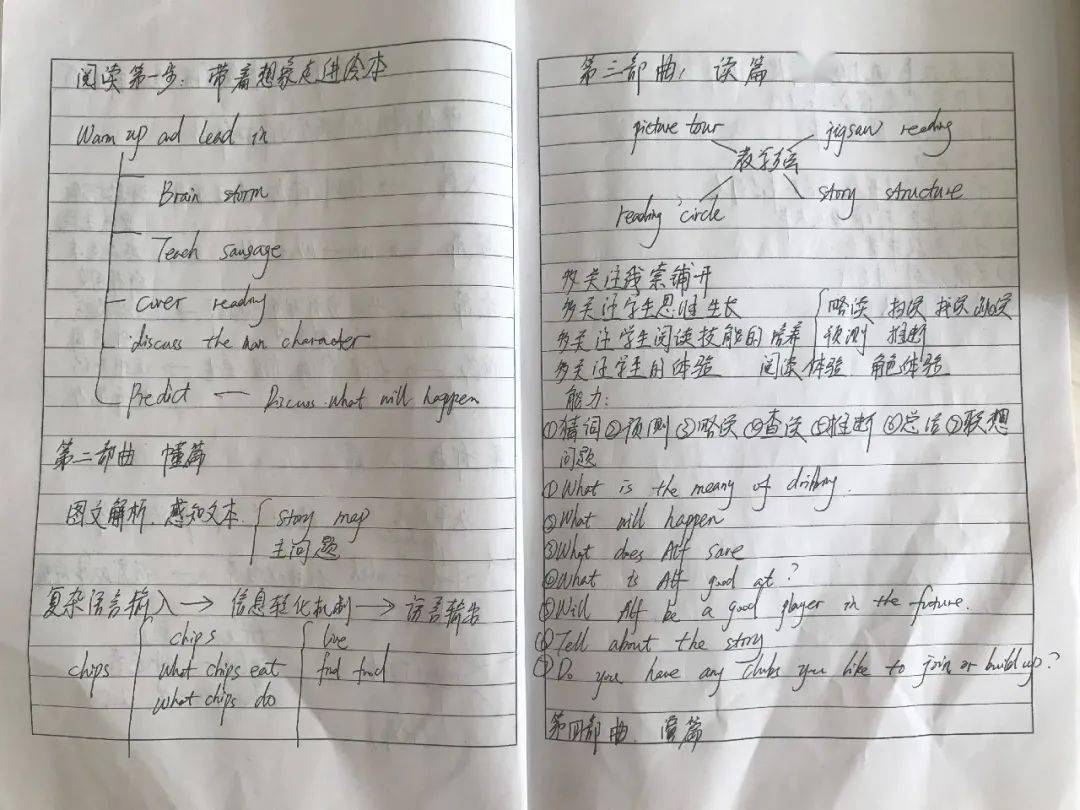 阅读第一步：带着想象走进绘本
Warm up ad lead in
Brain storm
Teach sausage
Cover reading
discuss the man character
Predict — Discuss what will happen
第二部曲 懂篇
图文解析. 感知文本. story map
主问题
复杂语言输入 → 信息转化机制 → 语言输出
chips live
chips what chips eat find food
what chips do
第三部曲, 读篇
picture tour jigsaw reading
reading circle story structure
多关注线索铺开
多关注学生思维生长 略读 扫读 找读
多关注学生阅读技能的培养 预测 推断
多关注学生的体验 阅读体验 角色体验
能力：
①猜词②预测③略读④查读⑤推断⑥总结⑦联想
问题
①What is the meany of
②What will happen
③What does Alf save
④What is Alf good at?
⑤Will Alf be a good player in the future.
⑥Tell about the story
⑦Do you have any clubs you like to join or build up?
第四部曲.